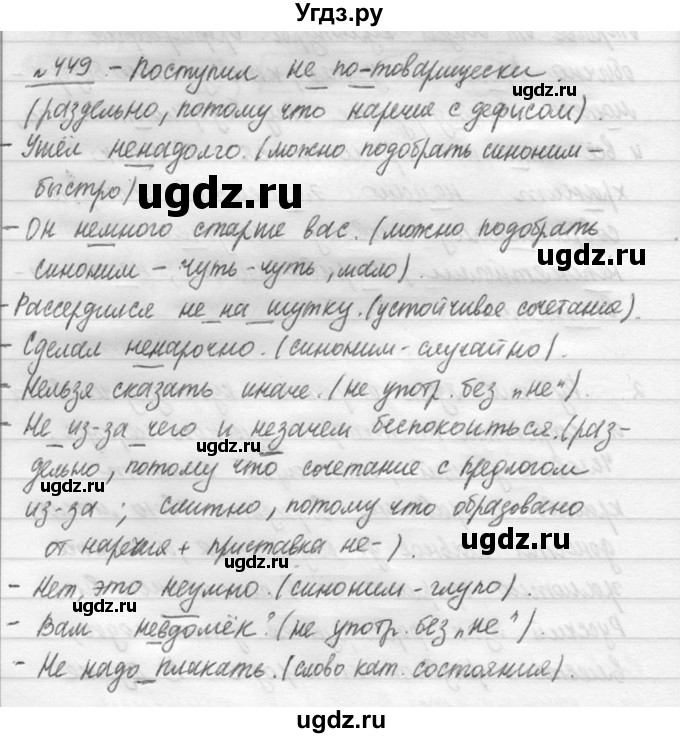 Угдз.ру
№449 - Поступил не по-товарищески.
(раздельно, потому что наречие с дефисом)
- Ушёл ненадолго. (можно подобрать синоним -
быстро)
ugdz.ru
ugdz.ru
- Он немного старше вас. (можно подобрать
синоним - чуть-чуть, мало).
ugdz.ru
- Рассердился не на шутку. (устойчивое сочетание).
- Сделал ненарочно. (синоним - случайно).
ugdz.ru
- Нельзя сказать иначе. (не употр. без „не").
- Не из-за чего и незачем беспокоиться. (раз-
ugdz.ru
дельно, потому что сочетание с предлогом
ugdz.ru
из-за; слитно, потому что образовано
от наречия + приставка не-).
ugdz.ru
ugdz.ru
- Нет, это неумно. (синоним - глупо).
ugdz.ru
- Вам невдомёк? (не употр. без „не")
- Не надо плакать. (слово кат. состояния).
ugdz.ru
ugdz.ru
ugdz.ru